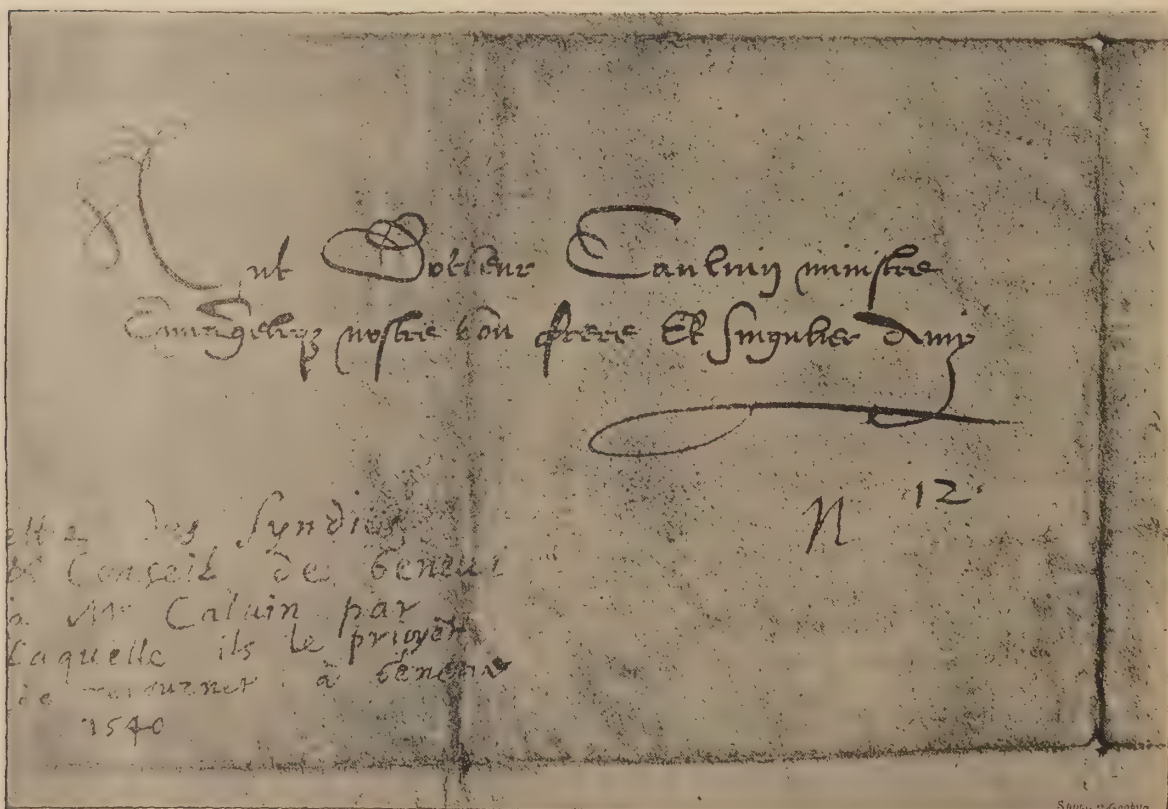 Docteur Caulvin ministre
Evangelique nostre bon frere Et singulier Amy
N 12
des Syndics
Conseil de Geneve
à Mr Caluin par
laquelle ils le prioyent
de retourner à Geneve
1540